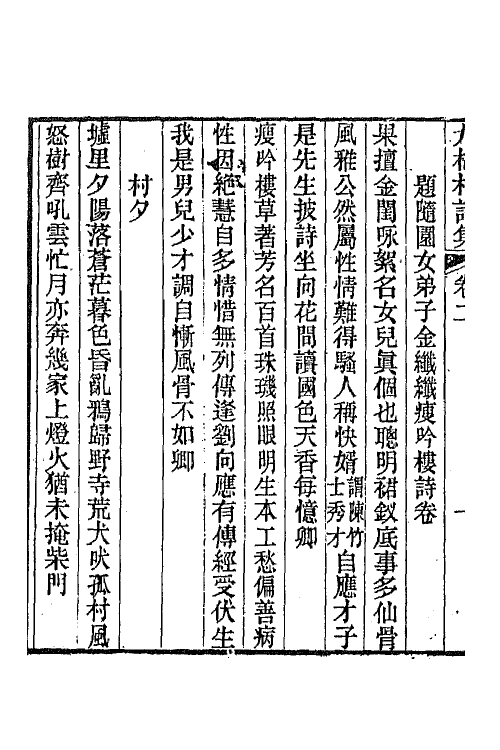 題隨園女弟子金纖纖瘦吟樓詩卷
果擅金閨咏絮名女兒眞個也聰明裙釵底事多仙骨
風雅公然屬性情難得騷人稱快婿謂陳竹士秀才自應才子
是先生披詩坐向花間讀國色天香每憶卿
瘦吟樓草著芳名百首珠璣照眼明生本工愁偏善病
性因絶慧自多情惜無列傳逢劉向應有傳經受伏生
我是男兒少才調自慚風骨不如卿
村夕
墟里夕陽落蒼茫暮色昏亂鴉歸野寺荒犬吠孤村風
怒樹齊吼雲忙月亦奔幾家上燈火猶未掩柴門